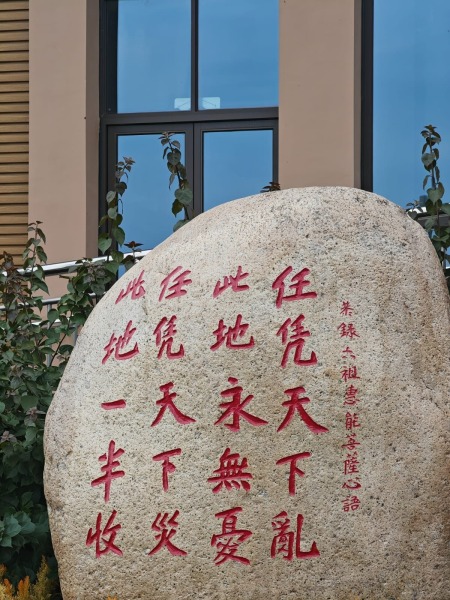 恭錄六祖惠能菩薩心語
任凭天下亂
此地永無憂
任凭天下災
此地一半收